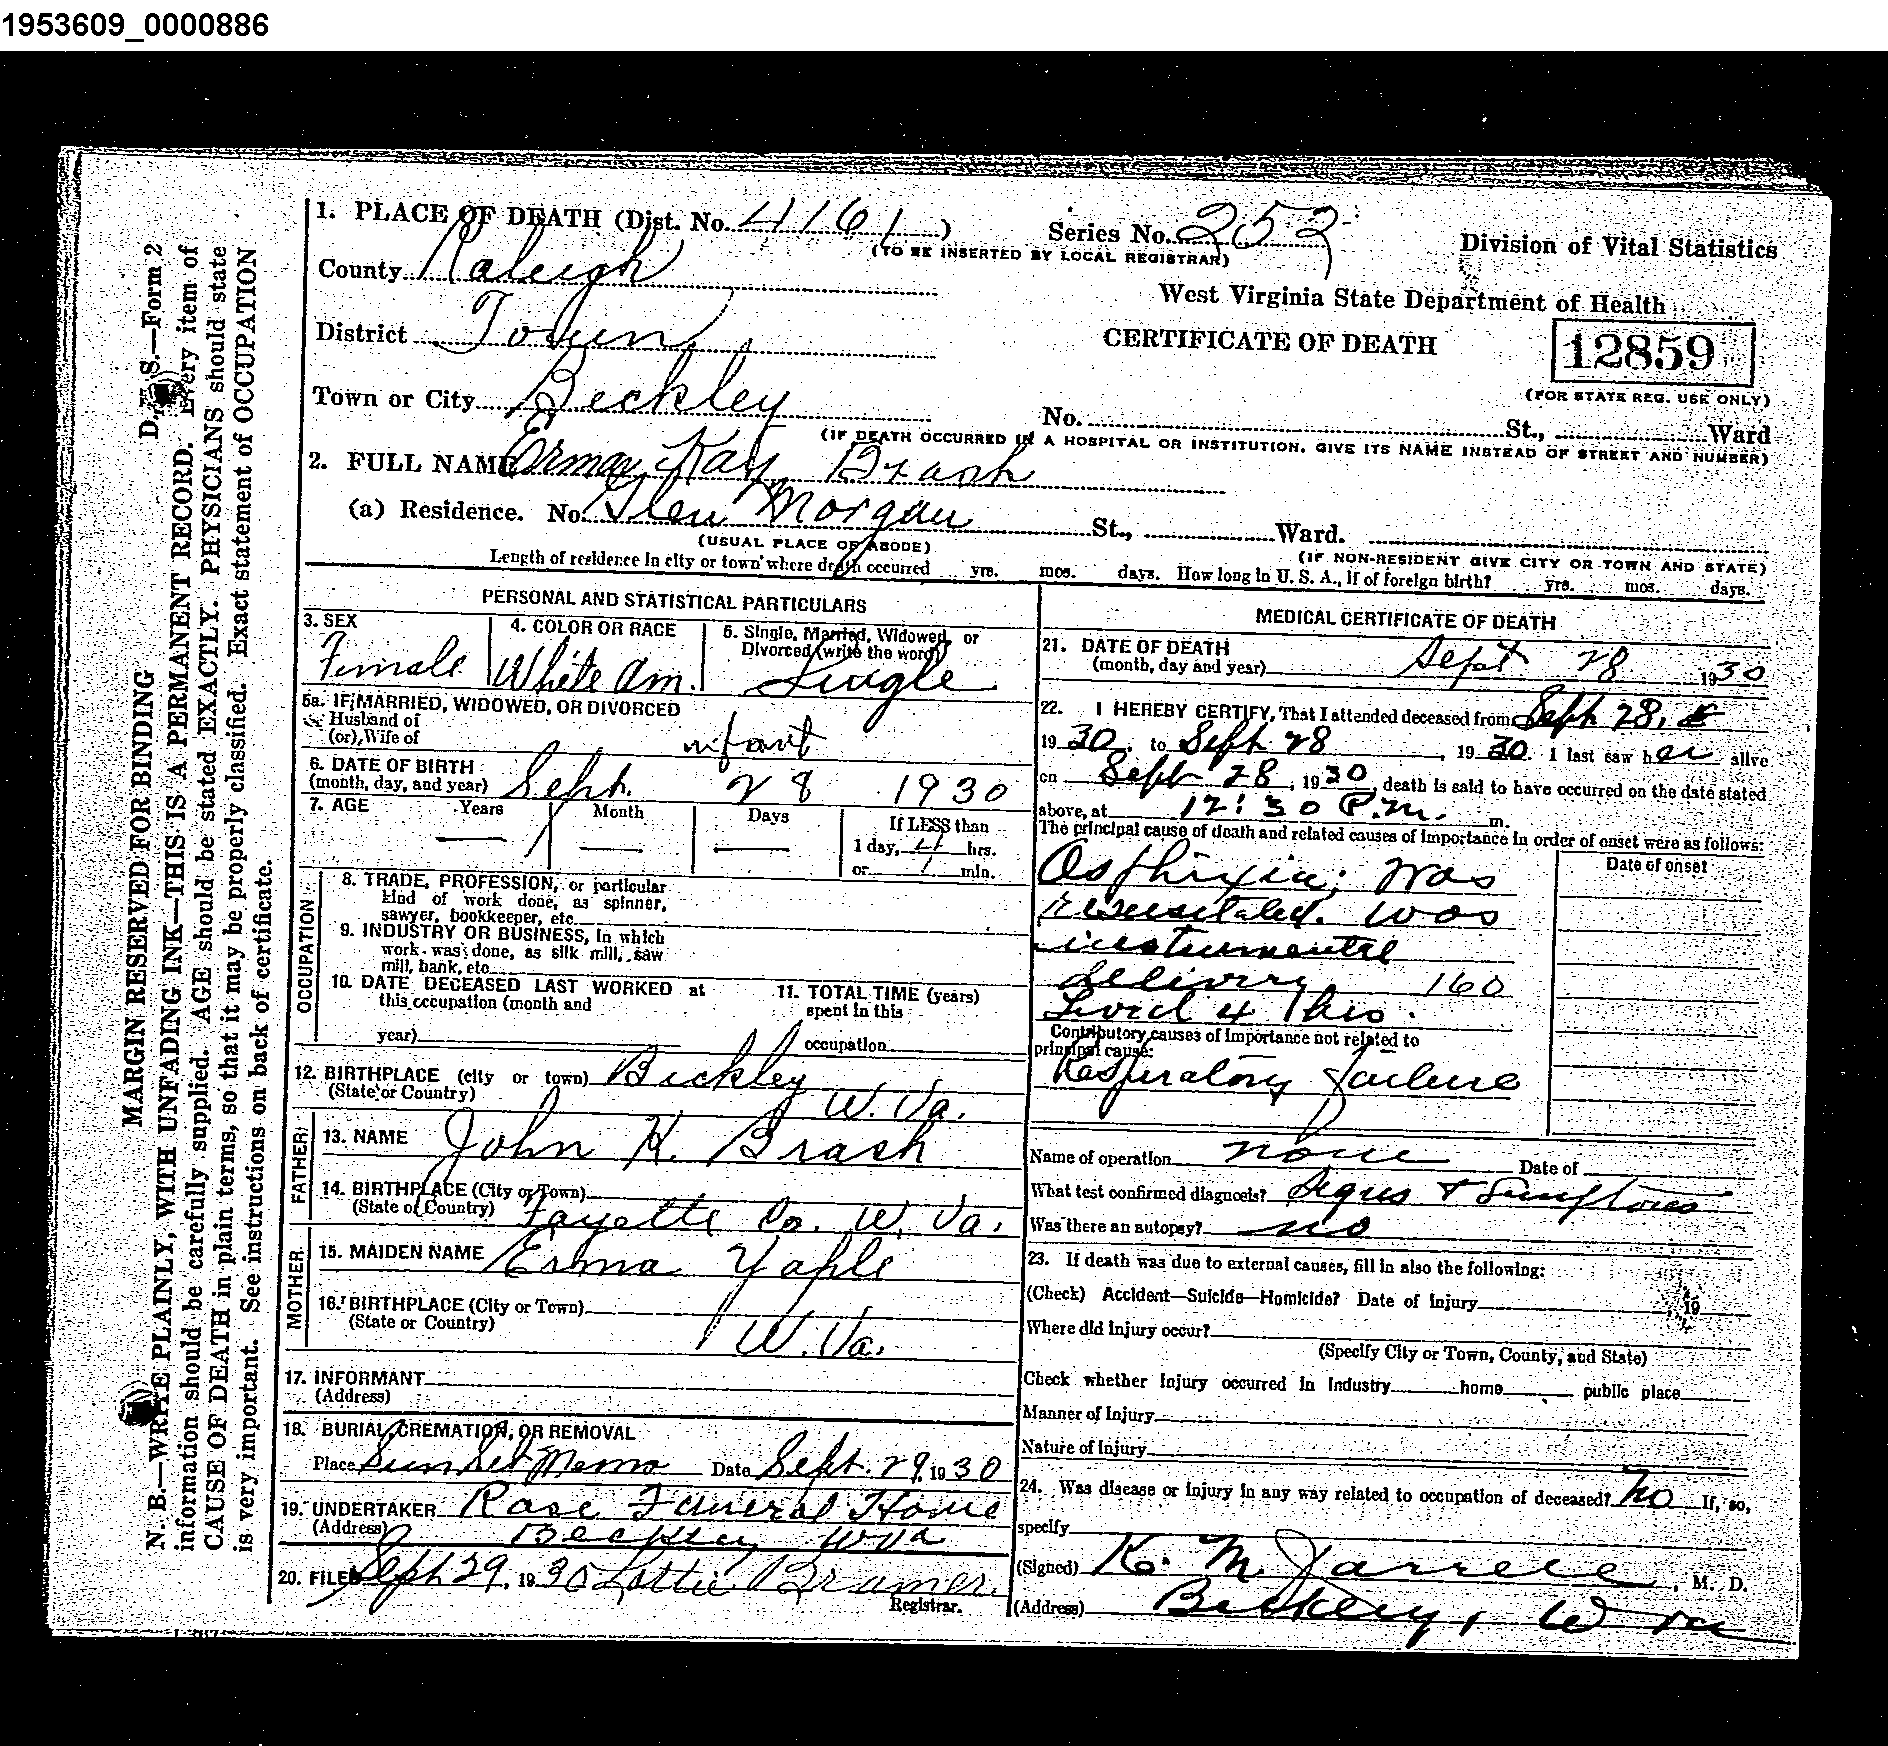 1953609_0000886
1. PLACE OF DEATH (Dist. No. 4161)
Series No. 252
(TO BE INSERTED BY LOCAL REGISTRAR)
Division of Vital Statistics
County Raleigh
West Virginia State Department of Health
District Town
CERTIFICATE OF DEATH
12859
(FOR STATE REG. USE ONLY)
Town or City Beckley
No. St., Ward
(IF DEATH OCCURRED IN A HOSPITAL OR INSTITUTION, GIVE ITS NAME INSTEAD OF STREET AND NUMBER)
2. FULL NAME Erma Kay Brash
(a) Residence. No. Glen Morgan St., Ward.
(USUAL PLACE OF ABODE)
(IF NON-RESIDENT GIVE CITY OR TOWN AND STATE)
Length of residence in city or town where death occurred yrs. mos. days. How long in U. S. A., if of foreign birth? yrs. mos. days.
PERSONAL AND STATISTICAL PARTICULARS
3. SEX
Female
4. COLOR OR RACE
White Am.
5. Single, Married, Widowed, or
Divorced (write the word)
Single
5a. IF MARRIED, WIDOWED, OR DIVORCED
Husband of
(or) Wife of
infant
6. DATE OF BIRTH
(month, day, and year) Sept. 28 1930
7. AGE Years Month Days If LESS than
1 day, 4 hrs.
or 1 min.
OCCUPATION
8. TRADE, PROFESSION, or particular
kind of work done, as spinner,
sawyer, bookkeeper, etc.
9. INDUSTRY OR BUSINESS, in which
work was done, as silk mill, saw
mill, bank, etc.
10. DATE DECEASED LAST WORKED at
this occupation (month and
year)
11. TOTAL TIME (years)
spent in this
occupation
12. BIRTHPLACE (city or town) Beckley
(State or Country) W. Va.
FATHER
13. NAME John H. Brash
14. BIRTHPLACE (City or Town)
(State or Country) Fayette Co. W. Va.
MOTHER
15. MAIDEN NAME Erma Yaple
16. BIRTHPLACE (City or Town)
(State or Country) W. Va.
17. INFORMANT
(Address)
18. BURIAL, CREMATION, OR REMOVAL
Place Sunset Memo Date Sept. 29, 1930
19. UNDERTAKER Rose Funeral Home
(Address) Beckley W Va
20. FILED Sept 29, 1930 Lottie Bramer.
Registrar.
MEDICAL CERTIFICATE OF DEATH
21. DATE OF DEATH
(month, day and year) Sept 28 1930
22. I HEREBY CERTIFY, That I attended deceased from Sept 28,
1930, to Sept 28, 1930. I last saw her alive
on Sept 28, 1930, death is said to have occurred on the date stated
above, at 12:30 P.m. m.
The principal cause of death and related causes of importance in order of onset were as follows:
Date of onset
Asphixia; was
resusitated. Was
instrumental
delivery 160
Lived 4 hrs.
Contributory causes of importance not related to
principal cause:
Respiratory failure
Name of operation none Date of
What test confirmed diagnosis? Signs & Symptoms
Was there an autopsy? no
23. If death was due to external causes, fill in also the following:
(Check) Accident—Suicide—Homicide? Date of Injury , 19
Where did injury occur?
(Specify City or Town, County, and State)
Check whether injury occurred in industry home public place
Manner of Injury
Nature of Injury
24. Was disease or injury in any way related to occupation of deceased? No If, so,
specify
(Signed) K. M. Jarrell, M. D.
(Address) Beckley, W Va
D. V. S.—Form 2
MARGIN RESERVED FOR BINDING
N. B.—WRITE PLAINLY, WITH UNFADING INK—THIS IS A PERMANENT RECORD. Every item of
information should be carefully supplied. AGE should be stated EXACTLY. PHYSICIANS should state
CAUSE OF DEATH in plain terms, so that it may be properly classified. Exact statement of OCCUPATION
is very important. See instructions on back of certificate.